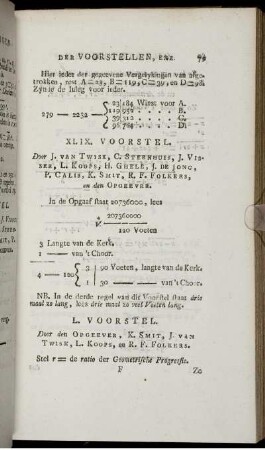 DER VOORSTELLEN, ENZ. 79
Hier ieder der gegeevene Vergelykingen van afge-
trokken, rest A = 23, B = 119, C = 39, en D = 98.
Zynde de Inleg voor ieder.
23 184 Winst voor A.
119,952 — — B.
279 — 2232 —
39, — — C.
98,784 — — D.
XLIX. VOORSTEL.
Door J. VAN TWISK, C. STEENHUIS, J. VIS-
SER, L. KOOPS, H. GHELE, J. DE JONG,
P. CALIS, K. SMIT, R. F. FOLKERS,
en den OPGEEVER.
In de Opgaaf staat 20736000, lees
207360000
120 Voeten
3 Langte van de Kerk.
1 — van 't Choor.
4 — 120 { 3 | 90 Voeten, langte van de Kerk.
1 | 30 — — van 't Choor.
NB. In de derde regel van dit Voorstel staat drie
maal zo lang, lees drie maal zo veel Voeten lang.
L. VOORSTEL.
Door den OPGEEVER, K. SMIT, J. VAN
TWISK, L. KOOPS, en R. F. FOLKERS.
Stel r = de ratio der Geometrische Progressie.
F Zo